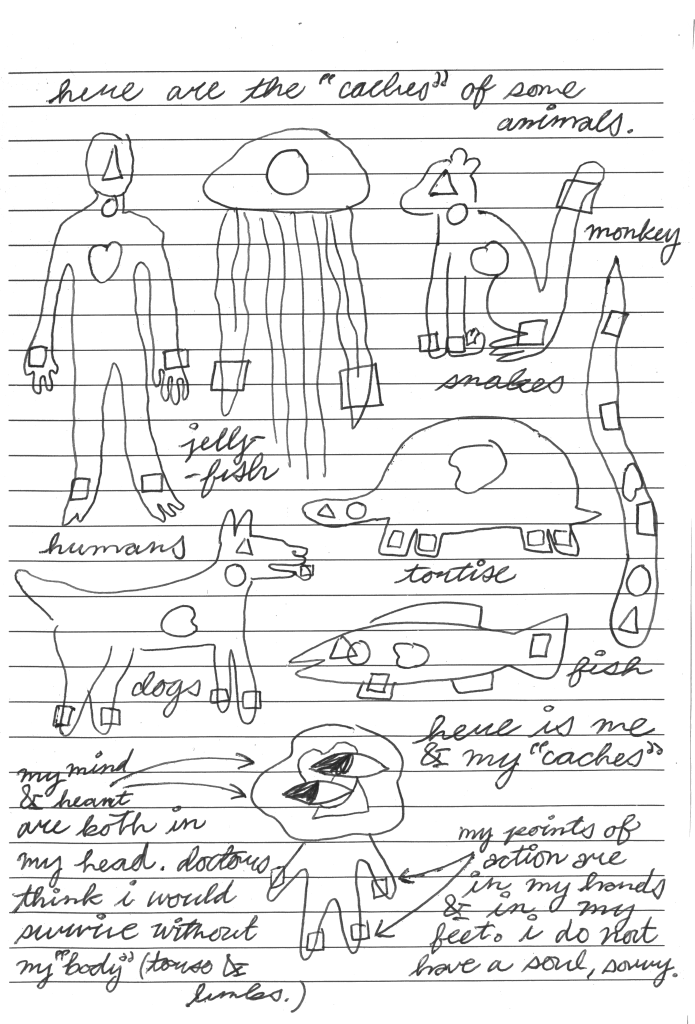 here are the "caches" of some
animals.
monkey
snakes
jelly-
-fish
humans
tortise
dogs
fish
here is me
& my "caches"
my mind
& heart
are both in
my head. doctors
think i would
survive without
my "body" (torso &
limbs.)
my points of
action are
in my hands
& in my
feet. i do not
have a soul, sorry.